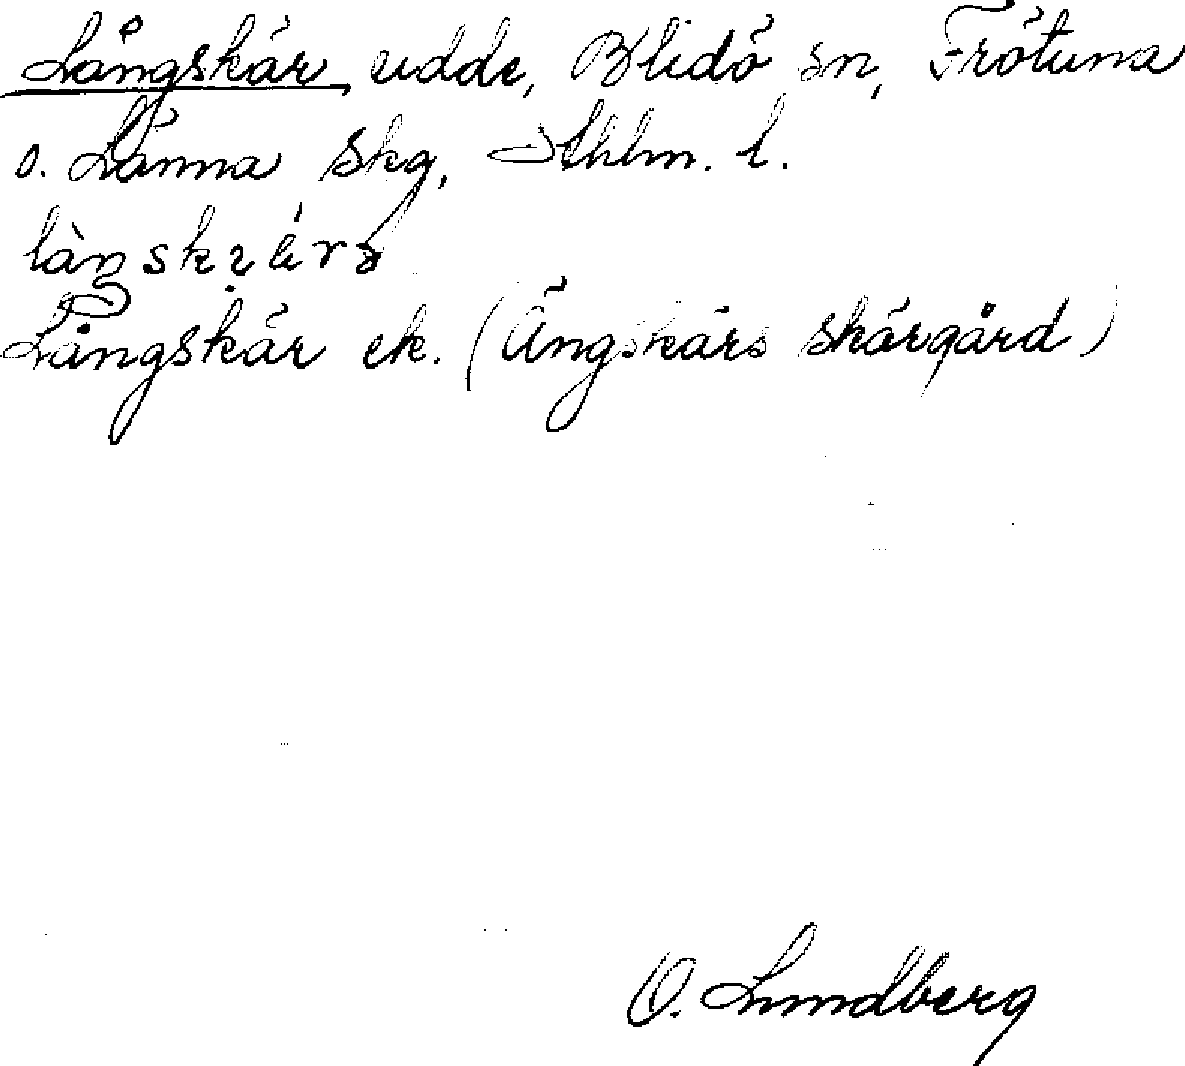 Långskär, udde, Blidö sn, Frötuna
o. Länna skg, Sthlm. l.
Långskär ek. (Ängskärs skärgård)
O. Lundberg